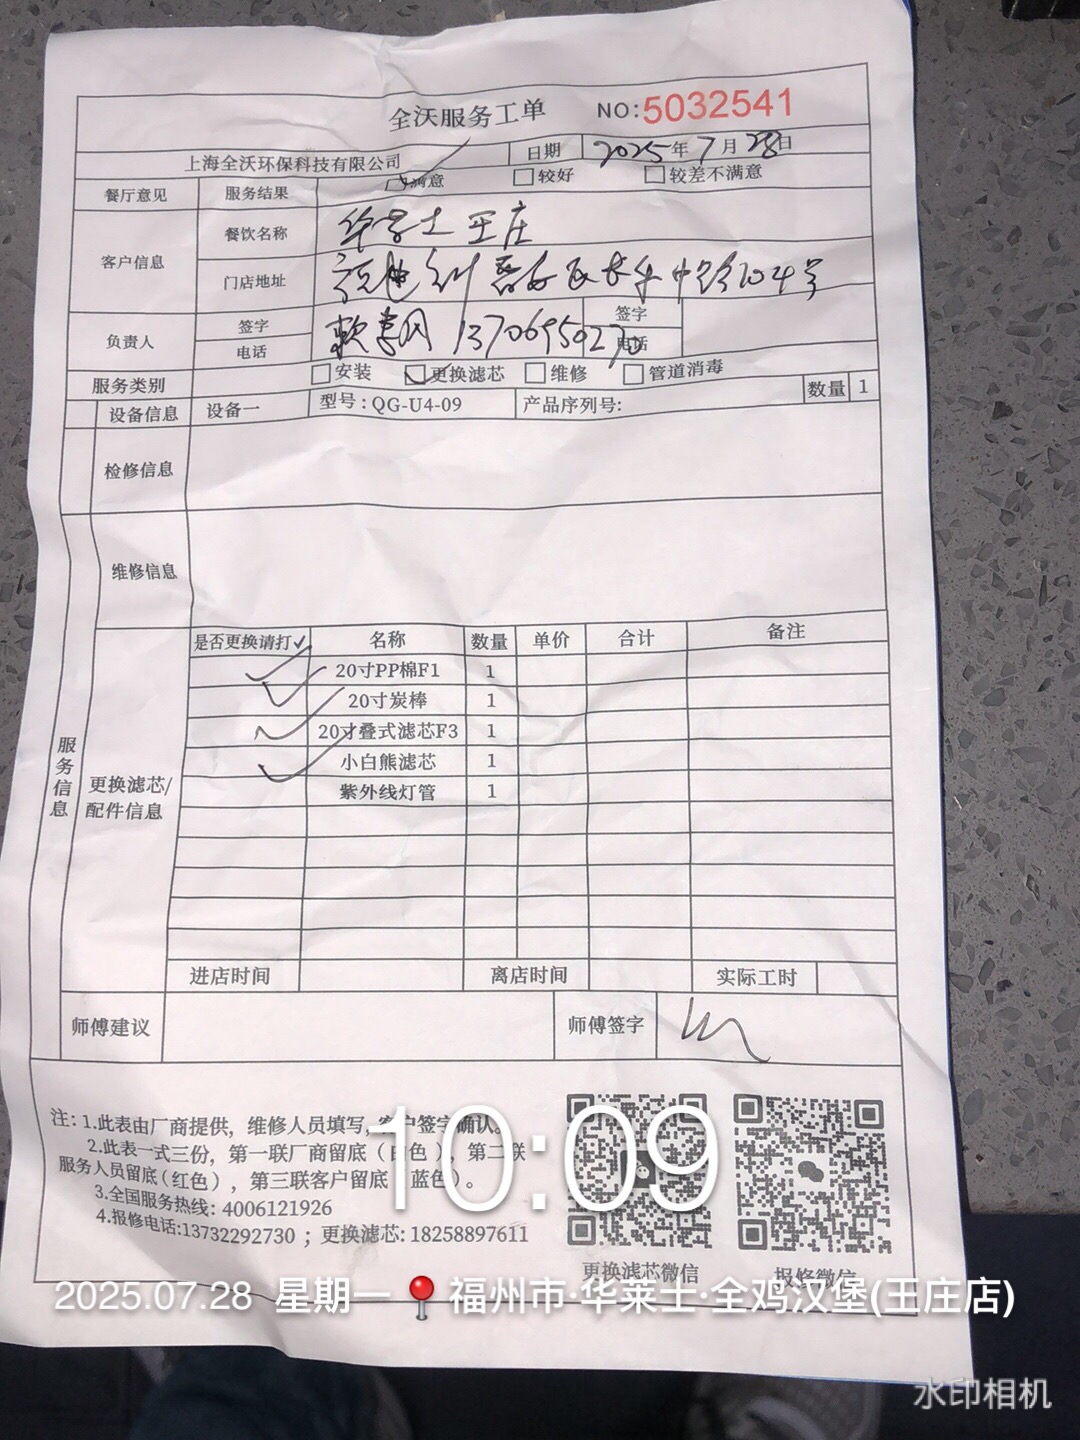 全沃服务工单 NO:5032541
上海全沃环保科技有限公司 日期 2025年7月28日
餐厅意见 服务结果 满意 较好 较差不满意
客户信息 餐饮名称 华莱士 王庄
门店地址 长乐中路104号
负责人 签字 签字
电话 13706950270 电话
服务类别 安装 更换滤芯 维修 管道消毒
设备信息 设备一 型号:QG-U4-09 产品序列号: 数量 1
检修信息
维修信息
服务信息
更换滤芯/
配件信息
是否更换请打✓ 名称 数量 单价 合计 备注
✓ 20寸PP棉F1 1
✓ 20寸炭棒 1
✓ 20寸叠式滤芯F3 1
✓ 小白熊滤芯 1
紫外线灯管 1
进店时间 离店时间 实际工时
师傅建议 师傅签字
注: 1.此表由厂商提供, 维修人员填写, 客户签字确认。
2.此表一式三份, 第一联厂商留底(白色), 第二联
服务人员留底(红色), 第三联客户留底(蓝色)。
3.全国服务热线: 4006121926
4.报修电话:13732292730 ; 更换滤芯: 18258897611
更换滤芯微信 报修微信
10:09
2025.07.28 星期一 福州市·华莱士·全鸡汉堡(王庄店)
水印相机